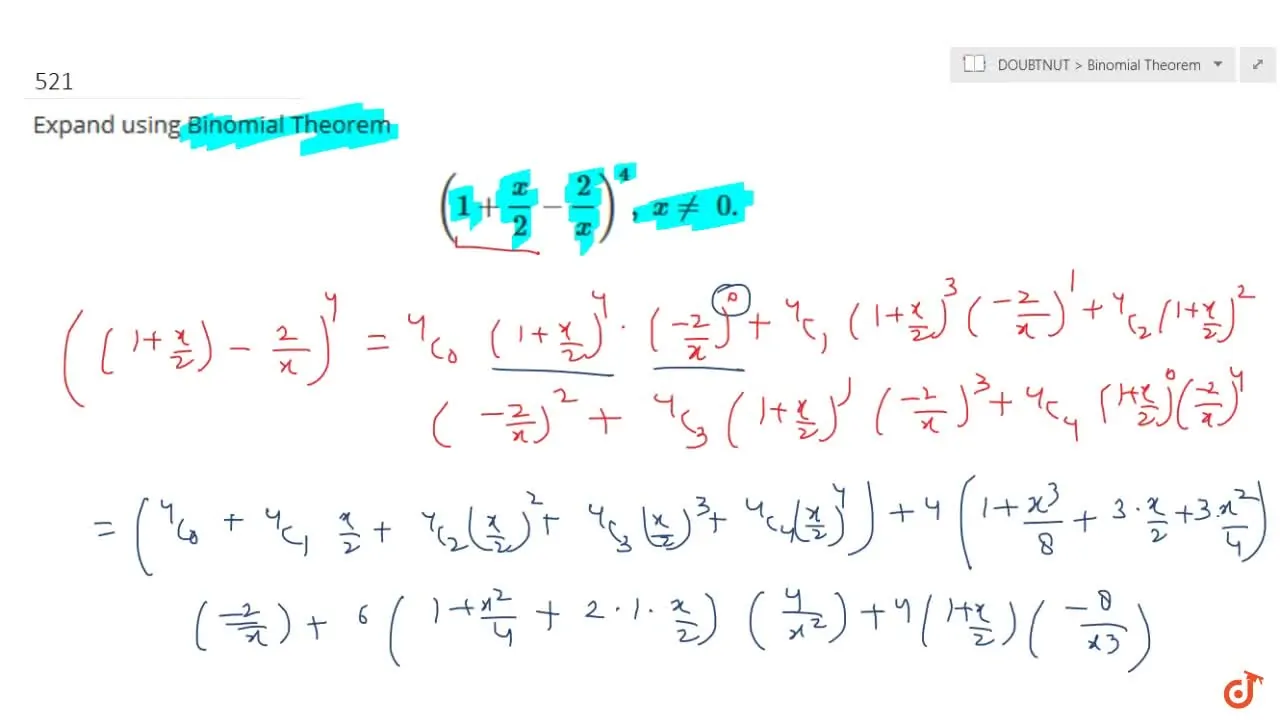 521
DOUBTNUT > Binomial Theorem
Expand using Binomial Theorem
(1 + x/2 − 2/x)^4, x ≠ 0.
((1 + x/2) − 2/x)^4 = 4C0 (1 + x/2)^4 · (−2/x)^0 + 4C1 (1 + x/2)^3 (−2/x)^1 + 4C2 (1 + x/2)^2
(−2/x)^2 + 4C3 (1 + x/2)^1 (−2/x)^3 + 4C4 (1 + x/2)^0 (−2/x)^4
= (4C0 + 4C1 x/2 + 4C2 (x/2)^2 + 4C3 (x/2)^3 + 4C4 (x/2)^4) + 4 (1 + x^3/8 + 3 · x/2 + 3 · x^2/4)
(−2/x) + 6 (1 + x^2/4 + 2 · 1 · x/2) (4/x^2) + 4 (1 + x/2) (−8/x3)